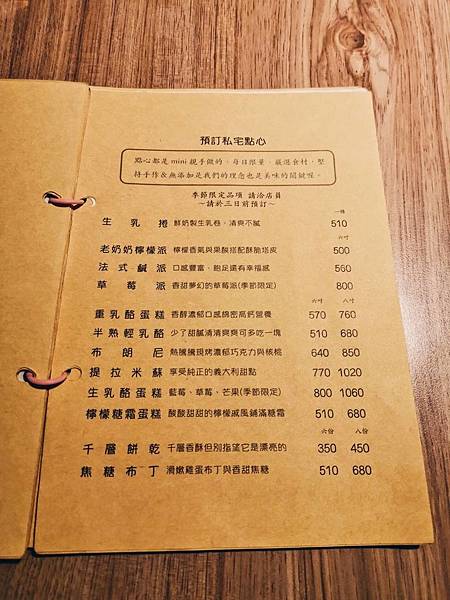 預訂私宅點心
點心都是mini親手做的、每日限量、嚴選食材，堅
持手作&無添加是我們的理念也是美味的關鍵喔。
季節限定品項 請洽店員
～請於三日前預訂～
一條
生乳捲 鮮奶製生乳卷，清爽不膩 510
六吋
老奶奶檸檬派 檸檬香氣與果酸搭配酥脆塔皮 500
法式鹹派 口感豐富、飽足還有幸福感 560
草莓派 香甜夢幻的草莓派(季節限定) 800
六吋 八吋
重乳酪蛋糕 香醇濃郁口感綿密高鈣營養 570 760
半熟輕乳酪 少了甜鹹清清爽爽可多吃一塊 510 680
布朗尼 熱騰騰現烤濃郁巧克力與核桃 640 850
提拉米蘇 享受純正的義大利甜點 770 1020
生乳酪蛋糕 藍莓、草莓、芒果(季節限定) 800 1060
檸檬糖霜蛋糕 酸酸甜甜的檸檬戚風鋪滿糖霜 510 680
六份 八份
千層餅乾 千層香酥但別指望它是漂亮的 350 450
焦糖布丁 滑嫩雞蛋布丁與香甜焦糖 510 680